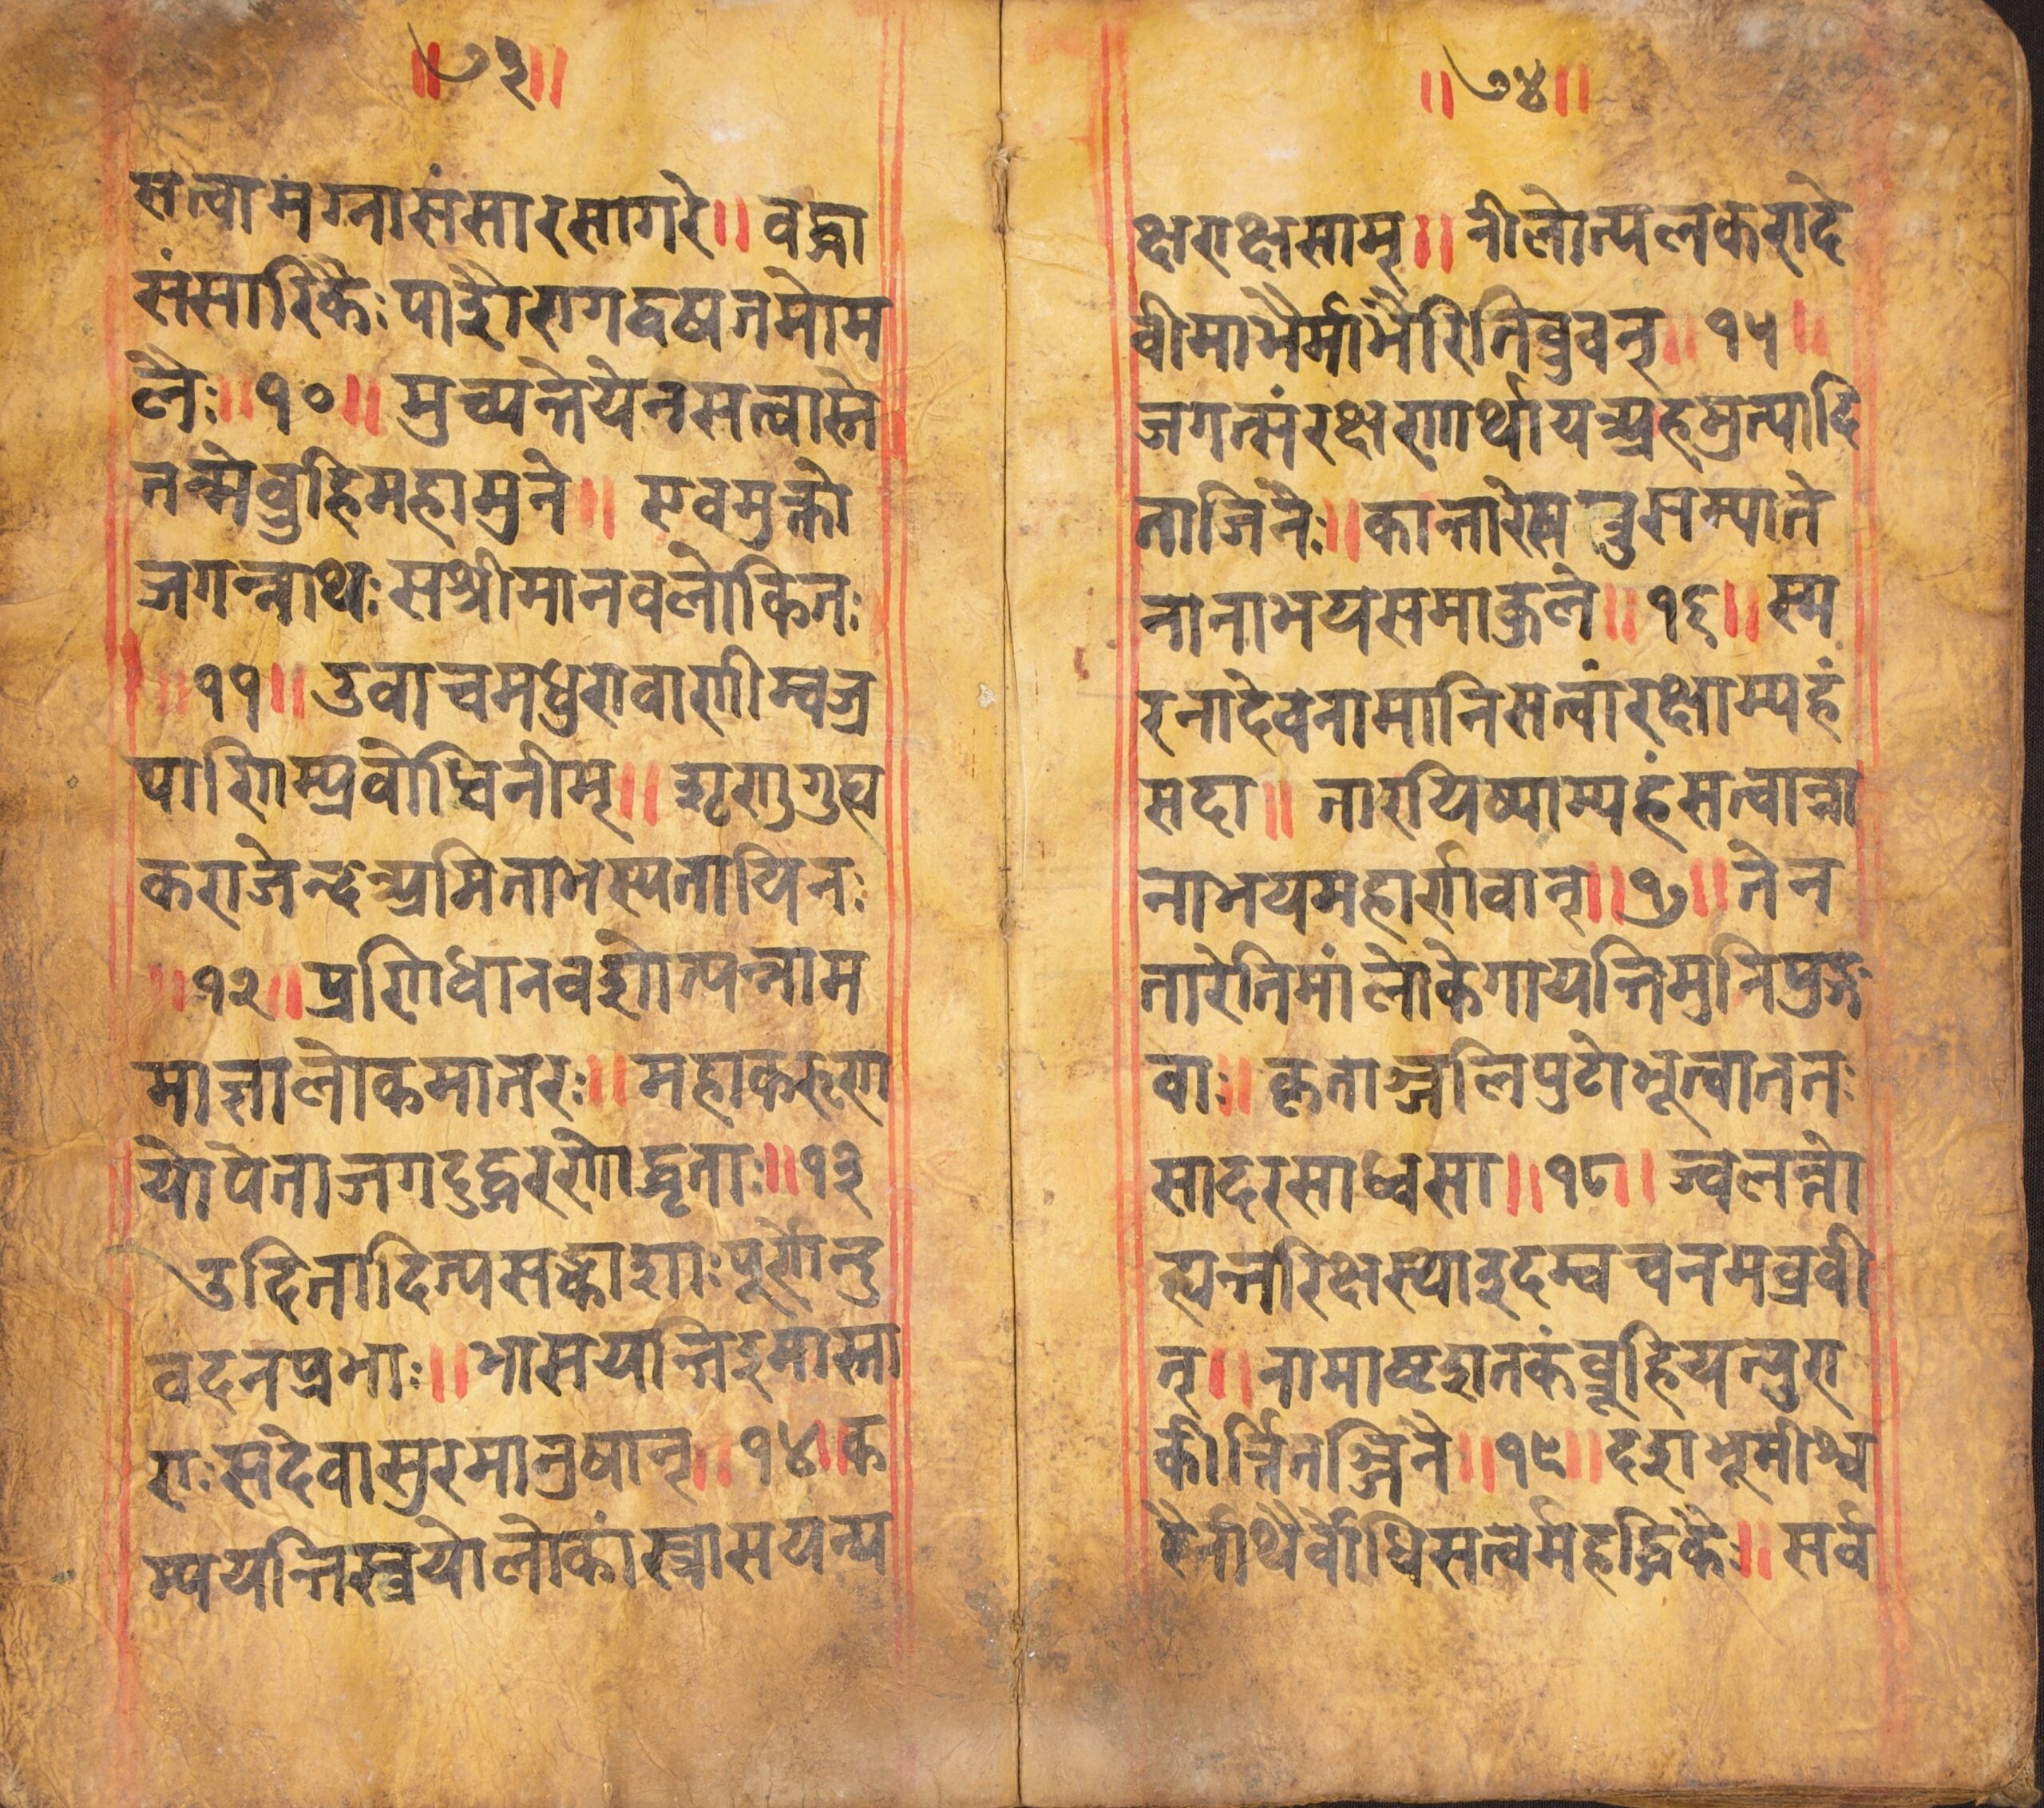 ॥७३॥
सत्वामग्नासंसारसागरे॥वद्धा
संसारिकैःपाशैरागद्वषजमोम
लैः॥१०॥मुच्यन्तेयेनसत्वास्ते
तन्मेव्रुहिमहामुने॥एवमुक्तो
जगन्नाथःसश्रीमानवलोकितः
॥११॥उवाचमधुरावाणीम्वज्र
पाणिम्प्रवोधिनीम्॥शृणुगुह्य
कराजेन्द्रअमिताभस्यतायिनः
॥१२॥प्रणिधानवशोत्पन्नाम
माज्ञालोकमातरः॥महाकरूणा
योपेताजगदुद्धरणोद्धृताः॥१३
उदितादित्यसङ्काशाःपूर्णेन्दु
वदनप्रभाः॥भासयन्तिइमास्ता
राःसदेवासुरमानुषान्॥१४॥क
म्पयन्तिस्त्रयोलोकांस्त्रासयन्य
॥७४॥
क्षराक्षसाम्॥नीलोत्पलकरादे
वीमाभैर्माभैरितिव्रुवन्॥१५॥
जगत्संरक्षणार्थायअहमुत्पादि
ताजिनैः॥कान्तारेसस्त्रुसम्पाते
नानाभयसमाकुले॥१६॥स्म
रनादेवनामानिसत्वांरक्षाम्यहं
सदा॥तारयिष्याम्यहंसत्वान्ना
नाभयमहार्णवान्॥१७॥तेन
तारेतिमांलोकेगायन्तिमुनिपुङ्ग
वाः॥कृताञ्जलिपुटोभूत्वाततः
सादरसाध्वसा॥१८॥ज्वलन्तो
ह्यन्तरिक्षस्थाइदम्वचनमव्रवी
त्॥नामाष्टशतकंव्रूहियत्पुरा
कीर्त्तितञ्जिनै॥१९॥दशभूमीश्व
रैर्नाथैर्वोधिसत्वर्महर्द्धिकैः॥सर्व